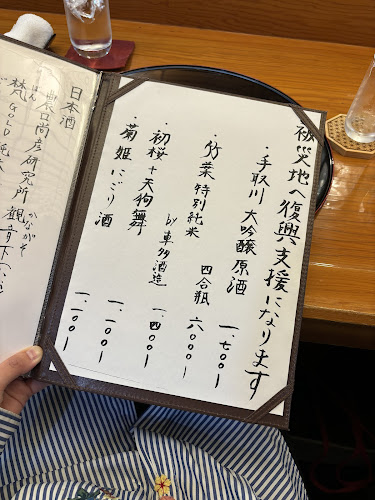 被災地へ復興支援になります
・手取川 大吟醸 原酒
一、七〇〇ー
・竹葉 特別純米 四合瓶
六〇〇〇ー
・初桜+天狗舞
by 車多酒造
一、四〇〇ー
菊姫 にごり酒
一、一〇〇ー
一、一〇〇ー
日本酒
農口尚彦研究所
梵 GOLD